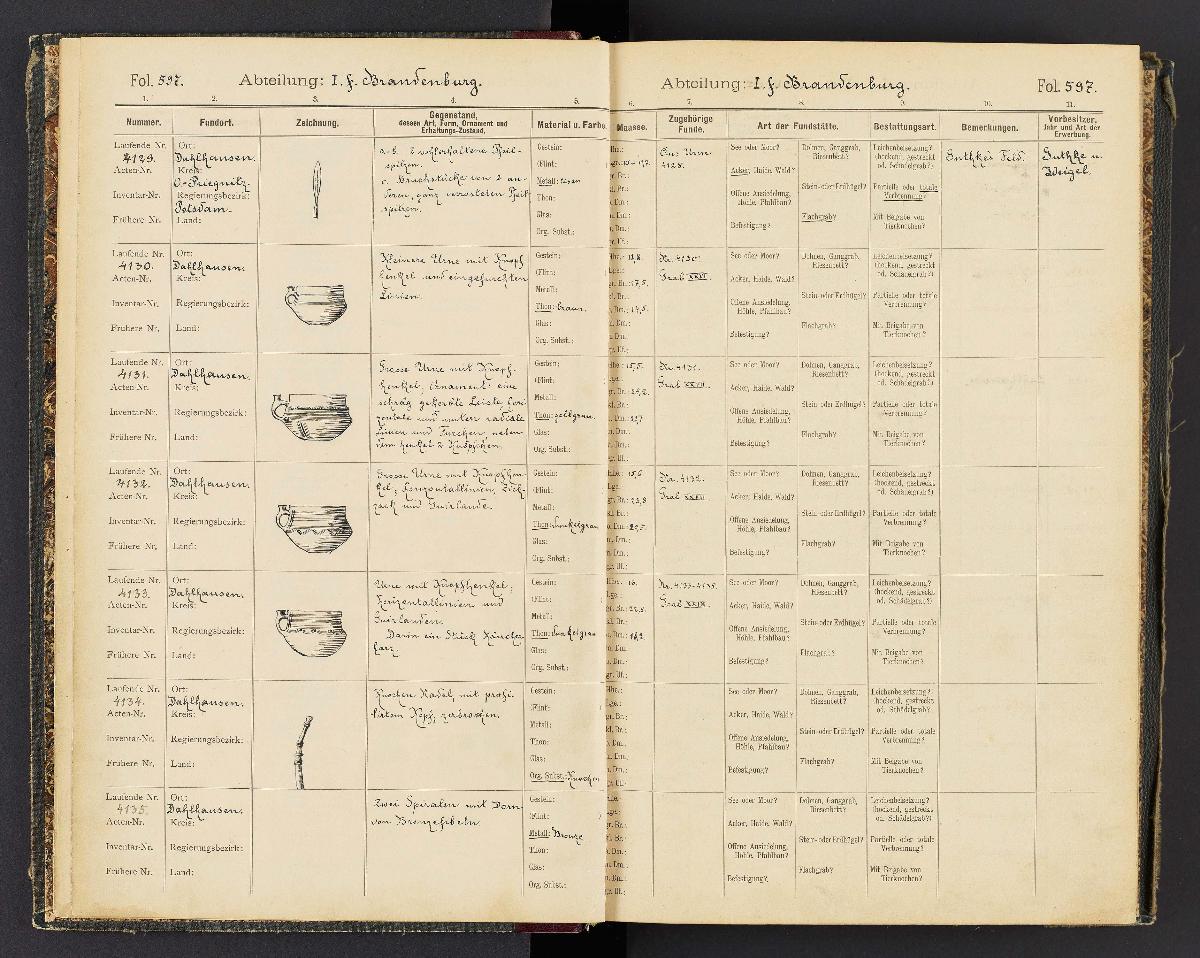 Fol. 597. Abteilung: I. f. Brandenburg.
1. 2. 3. 4. 5.
Nummer. Fundort. Zeichnung. Gegenstand, dessen Art, Form, Ornament und Erhaltungs-Zustand. Material u. Farbe.
Laufende Nr. 4129.
Acten-Nr.
Inventar-Nr.
Frühere Nr.
Ort: Dahlhausen.
Kreis: O-Priegnitz.
Regierungsbezirk: Potsdam.
Land:
a-b. 2 wohlerhaltene Pfeil-
spitzen.
c. Bruchstücke von 2 an-
deren, ganz verrosteten Pfeil-
spitzen.
Gestein:
(Flint:
Metall: Eisen
Thon:
Glas:
Org. Subst.:
Laufende Nr. 4130.
Acten-Nr.
Inventar-Nr.
Frühere Nr.
Ort: Dahlhausen.
Kreis:
Regierungsbezirk:
Land:
Kleinere Urne mit Knopf-
henkel und eingefurchten
Linien.
Gestein:
(Flint:
Metall:
Thon: braun.
Glas:
Org. Subst.:
Laufende Nr. 4131.
Acten-Nr.
Inventar-Nr.
Frühere Nr.
Ort: Dahlhausen.
Kreis:
Regierungsbezirk:
Land:
Grosse Urne mit Knopf-
henkel. Ornament: eine
schräg gekerbte Leiste, hori-
zontale und unten radiale
Linien und Furchen, neben
dem Henkel 2 Knöpfchen.
Gestein:
(Flint:
Metall:
Thon: gelbgrau.
Glas:
Org. Subst.:
Laufende Nr. 4132.
Acten-Nr.
Inventar-Nr.
Frühere Nr.
Ort: Dahlhausen.
Kreis:
Regierungsbezirk:
Land:
Grosse Urne mit Knopfhen-
kel, Horizontallinien, Zick-
zack und Guirlande.
Gestein:
(Flint:
Metall:
Thon: dunkelgrau
Glas:
Org. Subst.:
Laufende Nr. 4133.
Acten-Nr.
Inventar-Nr.
Frühere Nr.
Ort: Dahlhausen.
Kreis:
Regierungsbezirk:
Land:
Urne mit Knopfhenkel,
Horizontallinien und
Guirlanden.
Darin ein Stück Räucher-
harz.
Gestein:
(Flint:
Metall:
Thon: dunkelgrau
Glas:
Org. Subst.:
Laufende Nr. 4134.
Acten-Nr.
Inventar-Nr.
Frühere Nr.
Ort: Dahlhausen.
Kreis:
Regierungsbezirk:
Land:
Knochen Nadel, mit profi-
lirtem Kopf, zerbrochen.
Gestein:
(Flint:
Metall:
Thon:
Glas:
Org. Subst.: Knochen
Laufende Nr. 4135.
Acten-Nr.
Inventar-Nr.
Frühere Nr.
Ort: Dahlhausen.
Kreis:
Regierungsbezirk:
Land:
Zwei Spiralen mit Dorn
von Bronzefibeln.
Gestein:
(Flint:
Metall: Bronze
Thon:
Glas:
Org. Subst.:
Abteilung: I. f. Brandenburg. Fol. 597.
6. 7. 8. 9. 10. 11.
Maasse. Zugehörige Funde. Art der Fundstätte. Bestattungsart. Bemerkungen. Vorbesitzer, Jahr und Art der Erwerbung.
Aus Urne
4128.
See oder Moor?
Acker, Haide, Wald?
Offene Ansiedelung, Höhle, Pfahlbau?
Befestigung?
Dolmen, Ganggrab, Riesenbett?
Stein- oder Erdhügel?
Flachgrab?
Leichenbeisetzung? (hockend, gestreckt od. Schädelgrab?)
Partielle oder totale Verbrennung?
Mit Beigabe von Tierknochen?
Suthkes Feld.
Suthke u.
Weigel.
Nr. 4130.
Grab XXVI.
See oder Moor?
Acker, Haide, Wald?
Offene Ansiedelung, Höhle, Pfahlbau?
Befestigung?
Dolmen, Ganggrab, Riesenbett?
Stein- oder Erdhügel?
Flachgrab?
Leichenbeisetzung? (hockend, gestreckt od. Schädelgrab?)
Partielle oder totale Verbrennung?
Mit Beigabe von Tierknochen?
Nr. 4131.
See oder Moor?
Acker, Haide, Wald?
Offene Ansiedelung, Höhle, Pfahlbau?
Befestigung?
Dolmen, Ganggrab, Riesenbett?
Stein- oder Erdhügel?
Flachgrab?
Leichenbeisetzung? (hockend, gestreckt od. Schädelgrab?)
Partielle oder totale Verbrennung?
Mit Beigabe von Tierknochen?
Nr. 4132.
See oder Moor?
Acker, Haide, Wald?
Offene Ansiedelung, Höhle, Pfahlbau?
Befestigung?
Dolmen, Ganggrab, Riesenbett?
Stein- oder Erdhügel?
Flachgrab?
Leichenbeisetzung? (hockend, gestreckt od. Schädelgrab?)
Partielle oder totale Verbrennung?
Mit Beigabe von Tierknochen?
Nr. 4133-4135.
Grab XXIX.
See oder Moor?
Acker, Haide, Wald?
Offene Ansiedelung, Höhle, Pfahlbau?
Befestigung?
Dolmen, Ganggrab, Riesenbett?
Stein- oder Erdhügel?
Flachgrab?
Leichenbeisetzung? (hockend, gestreckt od. Schädelgrab?)
Partielle oder totale Verbrennung?
Mit Beigabe von Tierknochen?
See oder Moor?
Acker, Haide, Wald?
Offene Ansiedelung, Höhle, Pfahlbau?
Befestigung?
Dolmen, Ganggrab, Riesenbett?
Stein- oder Erdhügel?
Flachgrab?
Leichenbeisetzung? (hockend, gestreckt od. Schädelgrab?)
Partielle oder totale Verbrennung?
Mit Beigabe von Tierknochen?
See oder Moor?
Acker, Haide, Wald?
Offene Ansiedelung, Höhle, Pfahlbau?
Befestigung?
Dolmen, Ganggrab, Riesenbett?
Stein- oder Erdhügel?
Flachgrab?
Leichenbeisetzung? (hockend, gestreckt od. Schädelgrab?)
Partielle oder totale Verbrennung?
Mit Beigabe von Tierknochen?